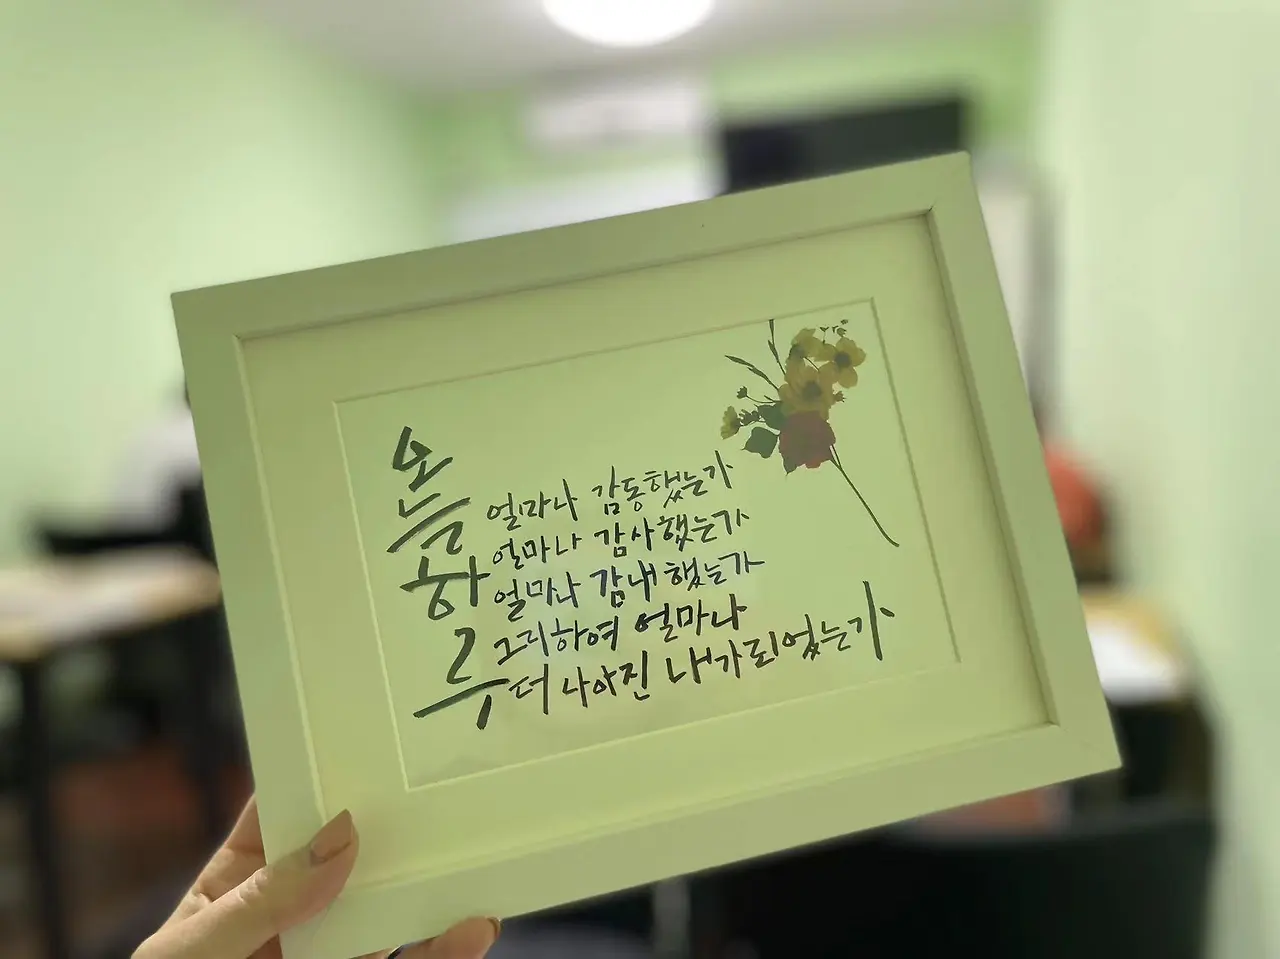 온
는
하
루
얼마나 감동했는가
얼마나 감사했는가
얼마나 감내했는가
그리하여 얼마나
더 나아진 내가되었는가